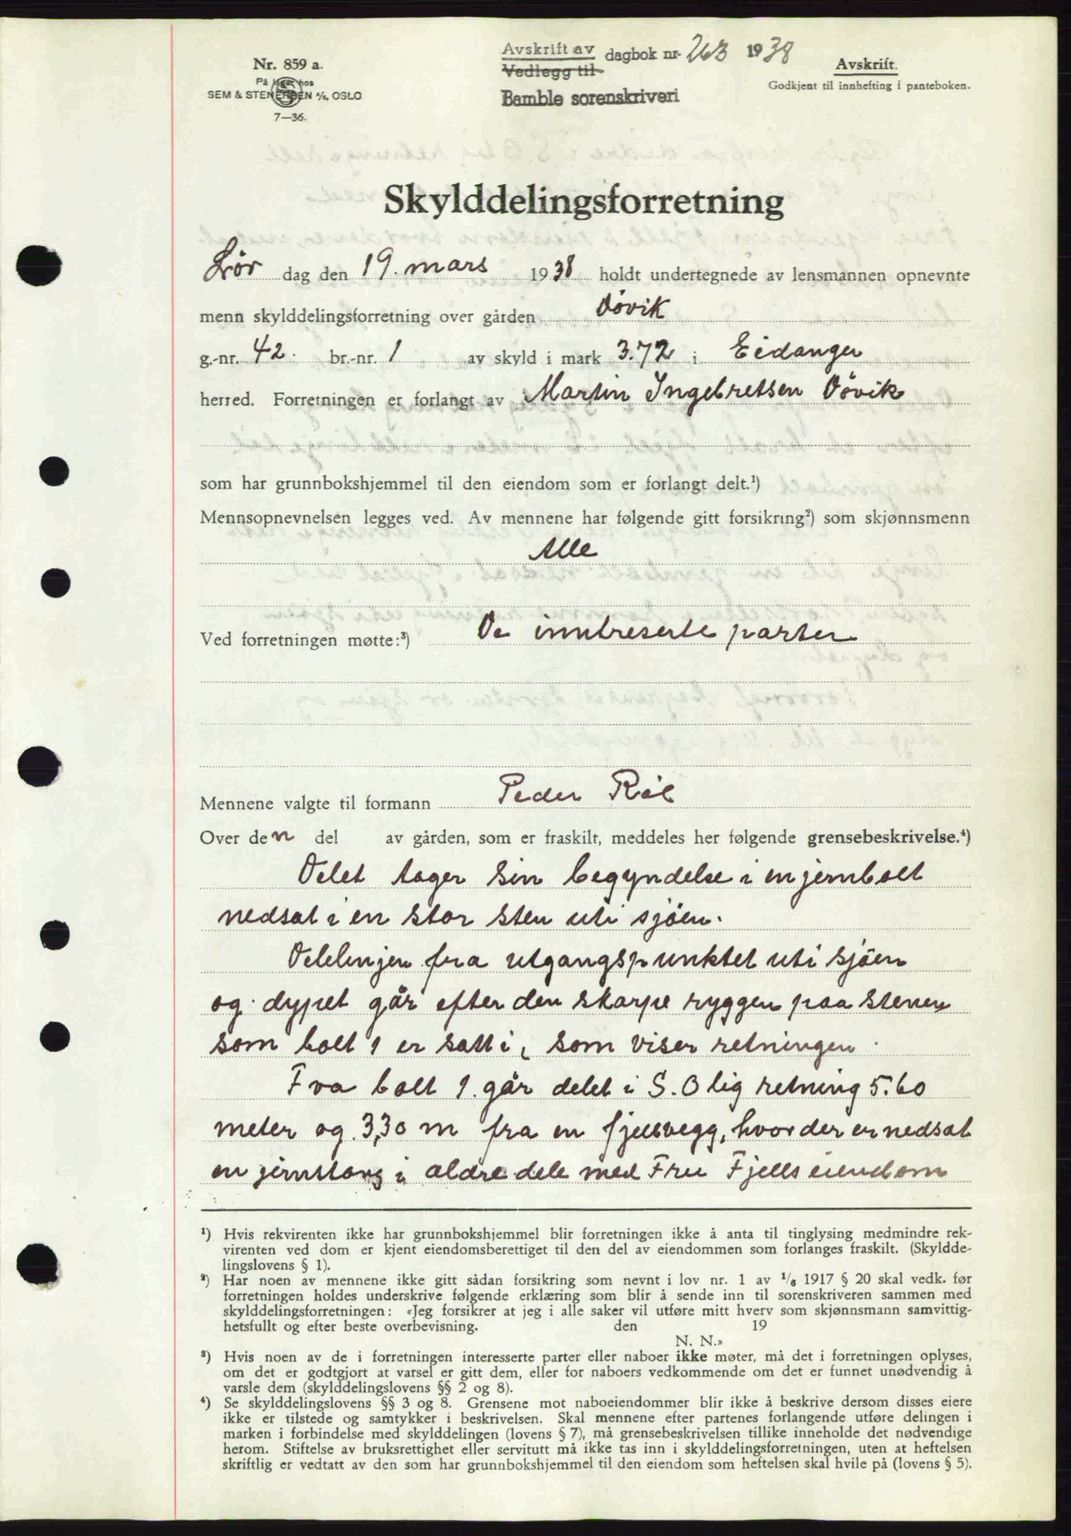 Nr. 859 a.
På lager hos
SEM & STENERSEN A/S, OSLO
7—36.
Avskrift av
Vedlegg til
dagbok nr. 263 1938
Bamble sorenskriveri
Avskrift.
Godkjent til innhefting i panteboken.
Skylddelingsforretning
Lör dag den 19. mars 1938 holdt undertegnede av lensmannen opnevnte
menn skylddelingsforretning over gården Dövik
g.-nr. 42. br.-nr. 1 av skyld i mark 3.72 i Eidanger
herred. Forretningen er forlangt av Martin Ingebretsen Dövik
som har grunnbokshjemmel til den eiendom som er forlangt delt.¹)
Mennsopnevnelsen legges ved. Av mennene har følgende gitt forsikring²) som skjønnsmenn
Alle
Ved forretningen møtte:³) De inntreserte parter
Mennene valgte til formann Peder
Over den del av gården, som er fraskilt, meddeles her følgende grensebeskrivelse.⁴)
Delet tager sin begyndelse i en jernbolt
nedsat i en stor sten uti sjöen.
Delelinjen fra utgangspunktet uti sjöen
og dypet går efter den skarpe ryggen paa stenen,
som bolt 1 er satt i, som viser retningen.
Fra bolt 1. går delet i S.O lig retning 5.60
meter og 3,30 m fra en fjellvegg, hvor der er nedsat
en jernstang i ældre dele med Fru Fjells eiendom
¹) Hvis rekvirenten ikke har grunnbokshjemmel blir forretningen ikke å anta til tinglysing medmindre rek-
virenten ved dom er kjent eiendomsberettiget til den del av eiendommen som forlanges fraskilt. (Skyldde-
lingslovens § 1).
²) Har noen av mennene ikke gitt sådan forsikring som nevnt i lov nr. 1 av 1/6 1917 § 20 skal vedk. før
forretningen holdes underskrive følgende erklæring som blir å sende inn til sorenskriveren sammen med
skylddelingsforretningen: «Jeg forsikrer at jeg i alle saker vil utføre mitt hverv som skjønnsmann samvittig-
hetsfullt og efter beste overbevisning. den 19
N. N.»
³) Hvis noen av de i forretningen interesserte parter eller naboer ikke møter, må det i forretningen oplyses,
om det er godtgjort at varsel er gitt dem, eller for naboers vedkommende om det er funnet unødvendig å
varsle dem (skylddelingslovens §§ 2 og 8).
⁴) Se skylddelingslovens §§ 3 og 8. Grensene mot naboeiendommer blir ikke å beskrive dersom disses eiere
ikke er tilstede og samtykker i beskrivelsen. Skal mennene efter partenes forlangende utføre delingen i
marken i forbindelse med skylddelingen (lovens § 7), må grensebeskrivelsen tillike inneholde det nødvendige
herom. Stiftelse av bruksrettighet eller servitutt må ikke tas inn i skylddelingsforretningen, uten at heftelsen
skriftlig er vedtatt av den som har grunnbokshjemmel til den eiendom som heftelsen skal hvile på (lovens § 5).